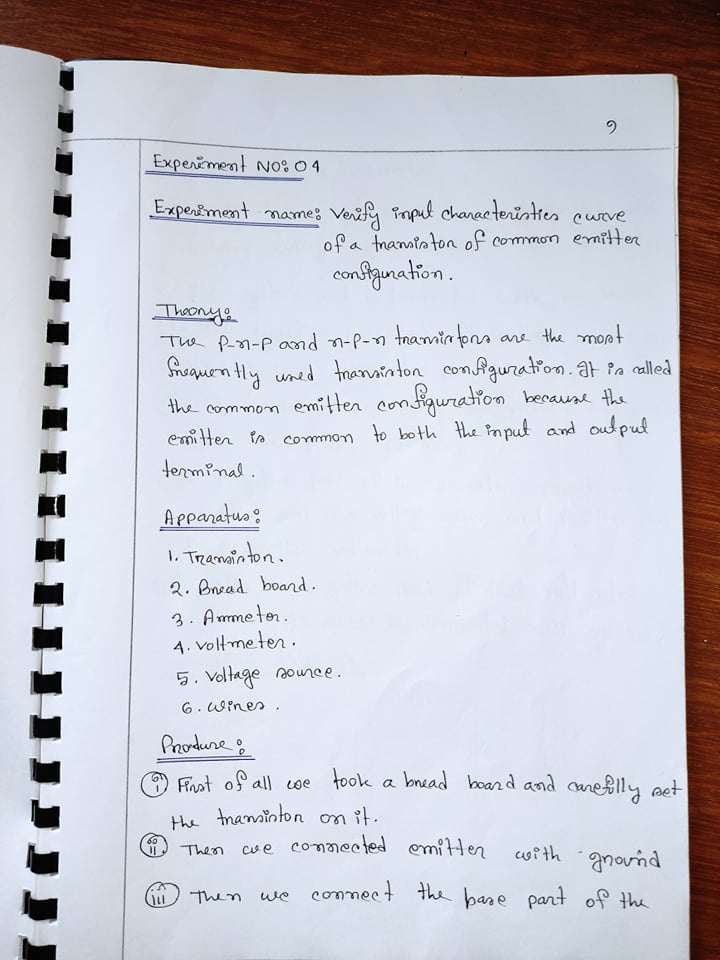 9
Experiment No: 04
Experiment name: Verify input characteristics curve
of a transistor of common emitter
configuration.
Theory:
The P-n-P and n-p-n transistors are the most
frequently used transistor configuration. It is called
the common emitter configuration because the
emitter is common to both the input and output
terminal.
Apparatus:
1. Transistor.
2. Bread board.
3. Ammeter.
4. Voltmeter.
5. Voltage source.
6. wires.
Produre:
(i) First of all we took a bread board and carefully set
the transistor on it.
(ii) Then we connected emitter with ground
(iii) Then we connect the base part of the